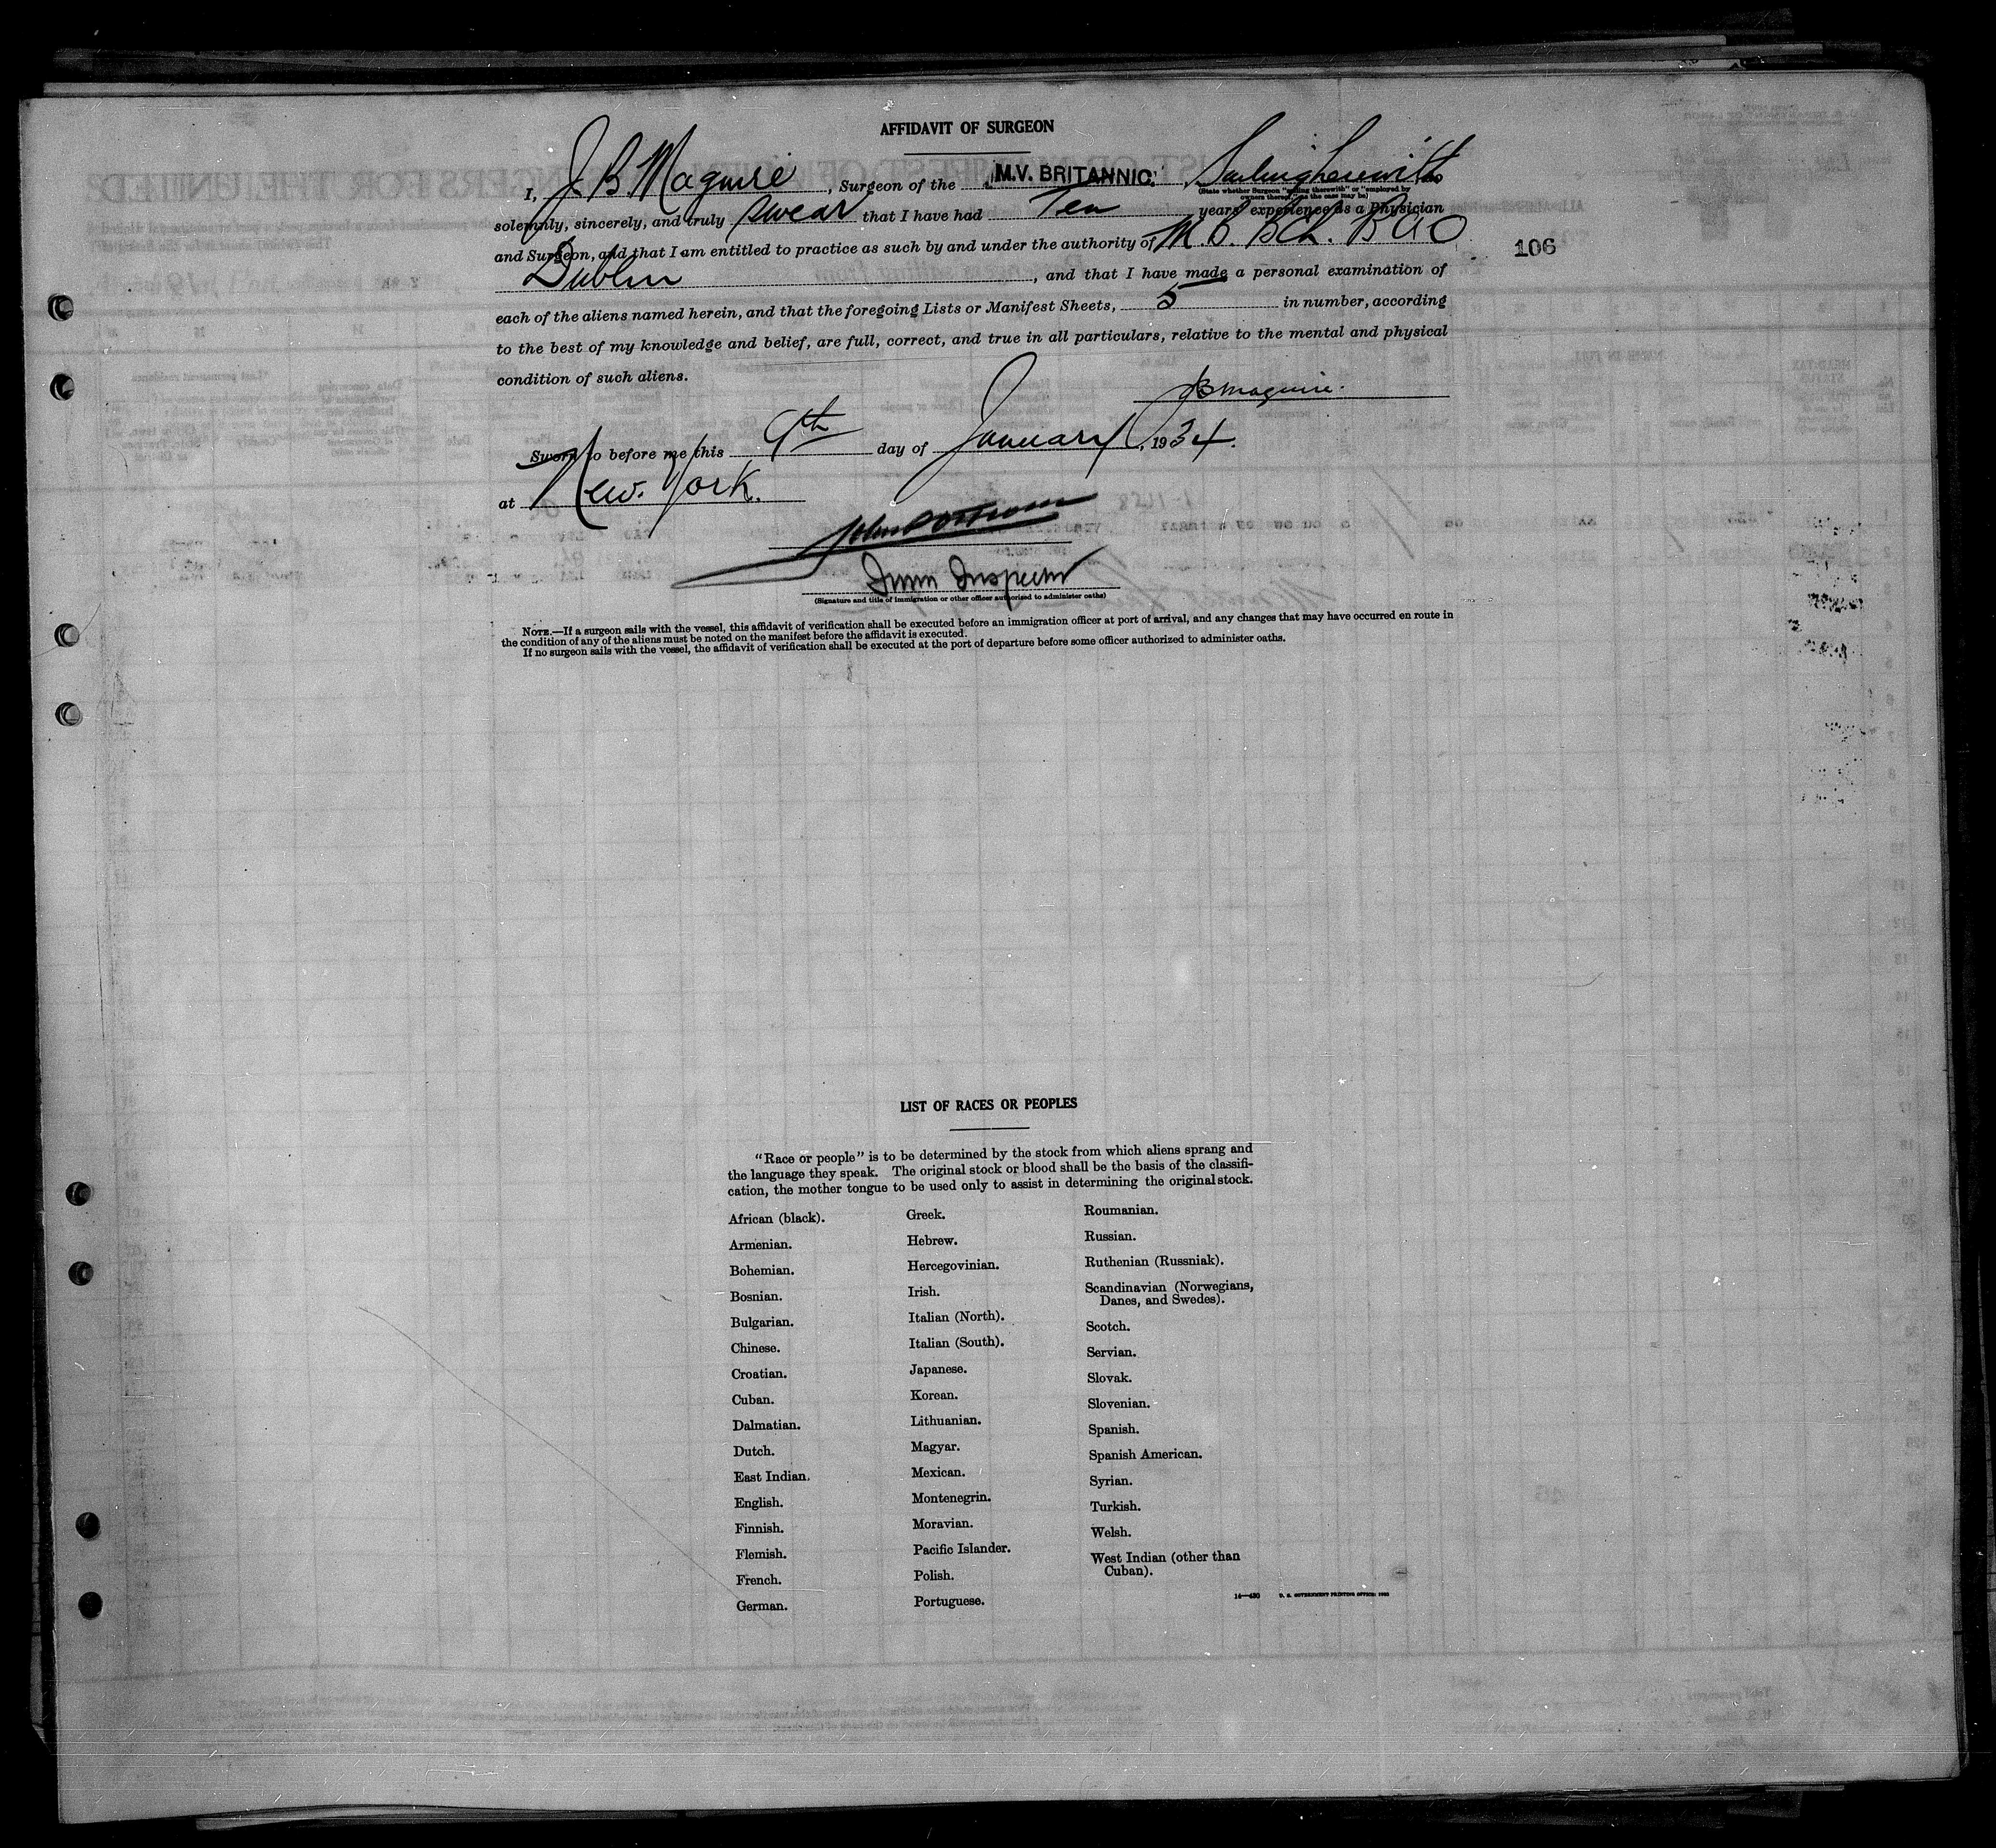 AFFIDAVIT OF SURGEON
I, J. B Maguire, Surgeon of the M.V. BRITANNIC. Sailing herewith do
(State whether Surgeon "sailing therewith" or "employed by
owners thereof," as the case may be)
solemnly, sincerely, and truly swear that I have had Ten years' experience as a Physician
and Surgeon, and that I am entitled to practice as such by and under the authority of M. B. BCh. BAO
106
Dublin, and that I have made a personal examination of
each of the aliens named herein, and that the foregoing Lists or Manifest Sheets, 5 in number, according
to the best of my knowledge and belief, are full, correct, and true in all particulars, relative to the mental and physical
condition of such aliens.
JB Maguire.
Sworn to before me this 9th day of January, 1934.
at New York.
Imm Inspector
(Signature and title of immigration or other officer authorized to administer oaths)
NOTE.—If a surgeon sails with the vessel, this affidavit of verification shall be executed before an immigration officer at port of arrival, and any changes that may have occurred en route in
the condition of any of the aliens must be noted on the manifest before the affidavit is executed.
If no surgeon sails with the vessel, the affidavit of verification shall be executed at the port of departure before some officer authorized to administer oaths.
LIST OF RACES OR PEOPLES
"Race or people" is to be determined by the stock from which aliens sprang and
the language they speak. The original stock or blood shall be the basis of the classifi-
cation, the mother tongue to be used only to assist in determining the original stock.
African (black).
Armenian.
Bohemian.
Bosnian.
Bulgarian.
Chinese.
Croatian.
Cuban.
Dalmatian.
Dutch.
East Indian.
English.
Finnish.
Flemish.
French.
German.
Greek.
Hebrew.
Hercegovinian.
Irish.
Italian (North).
Italian (South).
Japanese.
Korean.
Lithuanian.
Magyar.
Mexican.
Montenegrin.
Moravian.
Pacific Islander.
Polish.
Portuguese.
Roumanian.
Russian.
Ruthenian (Russniak).
Scandinavian (Norwegians,
Danes, and Swedes).
Scotch.
Servian.
Slovak.
Slovenian.
Spanish.
Spanish American.
Syrian.
Turkish.
Welsh.
West Indian (other than
Cuban).
14—430 U. S. GOVERNMENT PRINTING OFFICE